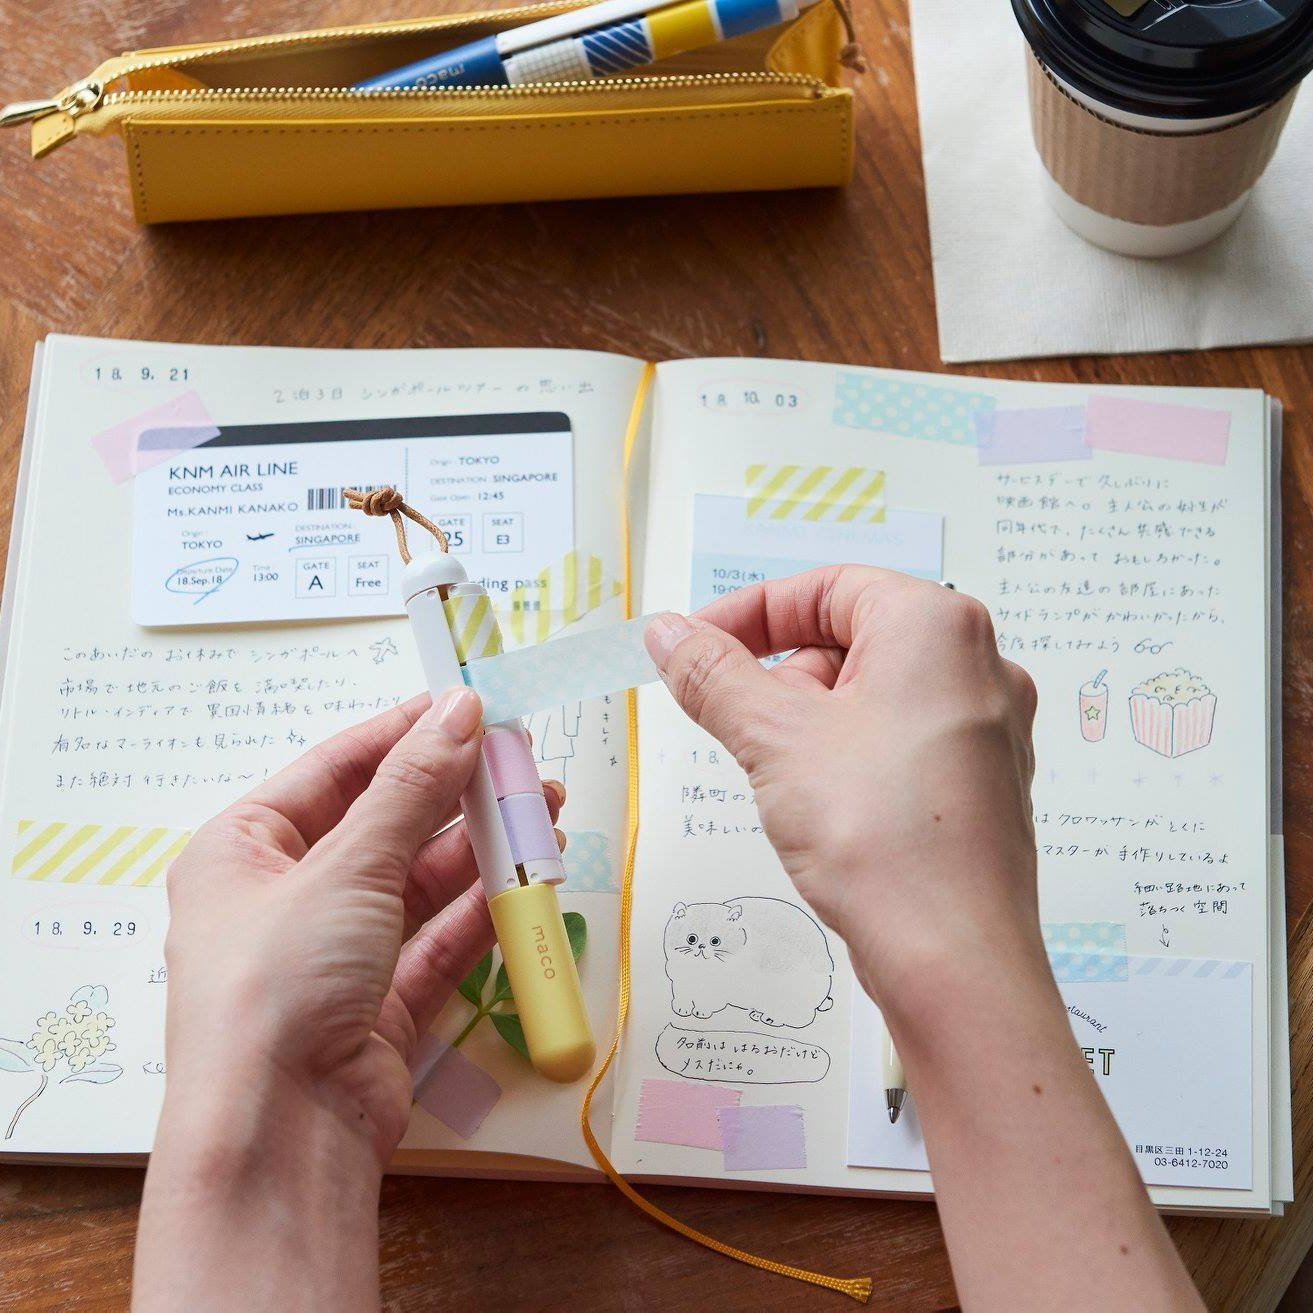 maco
18. 9. 21
2泊3日 シンガポールツアー の思い出
KNM AIR LINE
ECONOMY CLASS
Ms.KANMI KANAKO
Origin :
TOKYO
DESTINATION :
SINGAPORE
Departure Date
18.Sep.18
Time :
13:00
GATE
A
SEAT
Free
Origin : TOKYO
DESTINATION : SINGAPORE
Gate Open : 12:45
GATE
25
SEAT
E3
ding pass
このあいだの お休みで シンガポールへ
市場で地元のご飯を 満喫したり、
リトル・インディアで 異国情緒を 味わったり
有名なマーライオンも見られた
また絶対 行きたいな〜!
18. 9. 29
近
maco
18. 10. 03
サービスデーで久しぶりに
映画館へ。主人公の女性が
同年代で、たくさん共感できる
部分があって おもしろかった。
主人公の友達の部屋にあった
サイドランプがかわいかったから、
今度探してみよう
10/3(水)
19:0
18.
隣町の
美味しいの
は クロワッサンが とくに
マスターが 手作りしているよ
細い路地にあって
落ちつく空間
名前は はるおだけど
メスだにゃ。
staurant
ET
目黒区三田 1-12-24
03-6412-7020